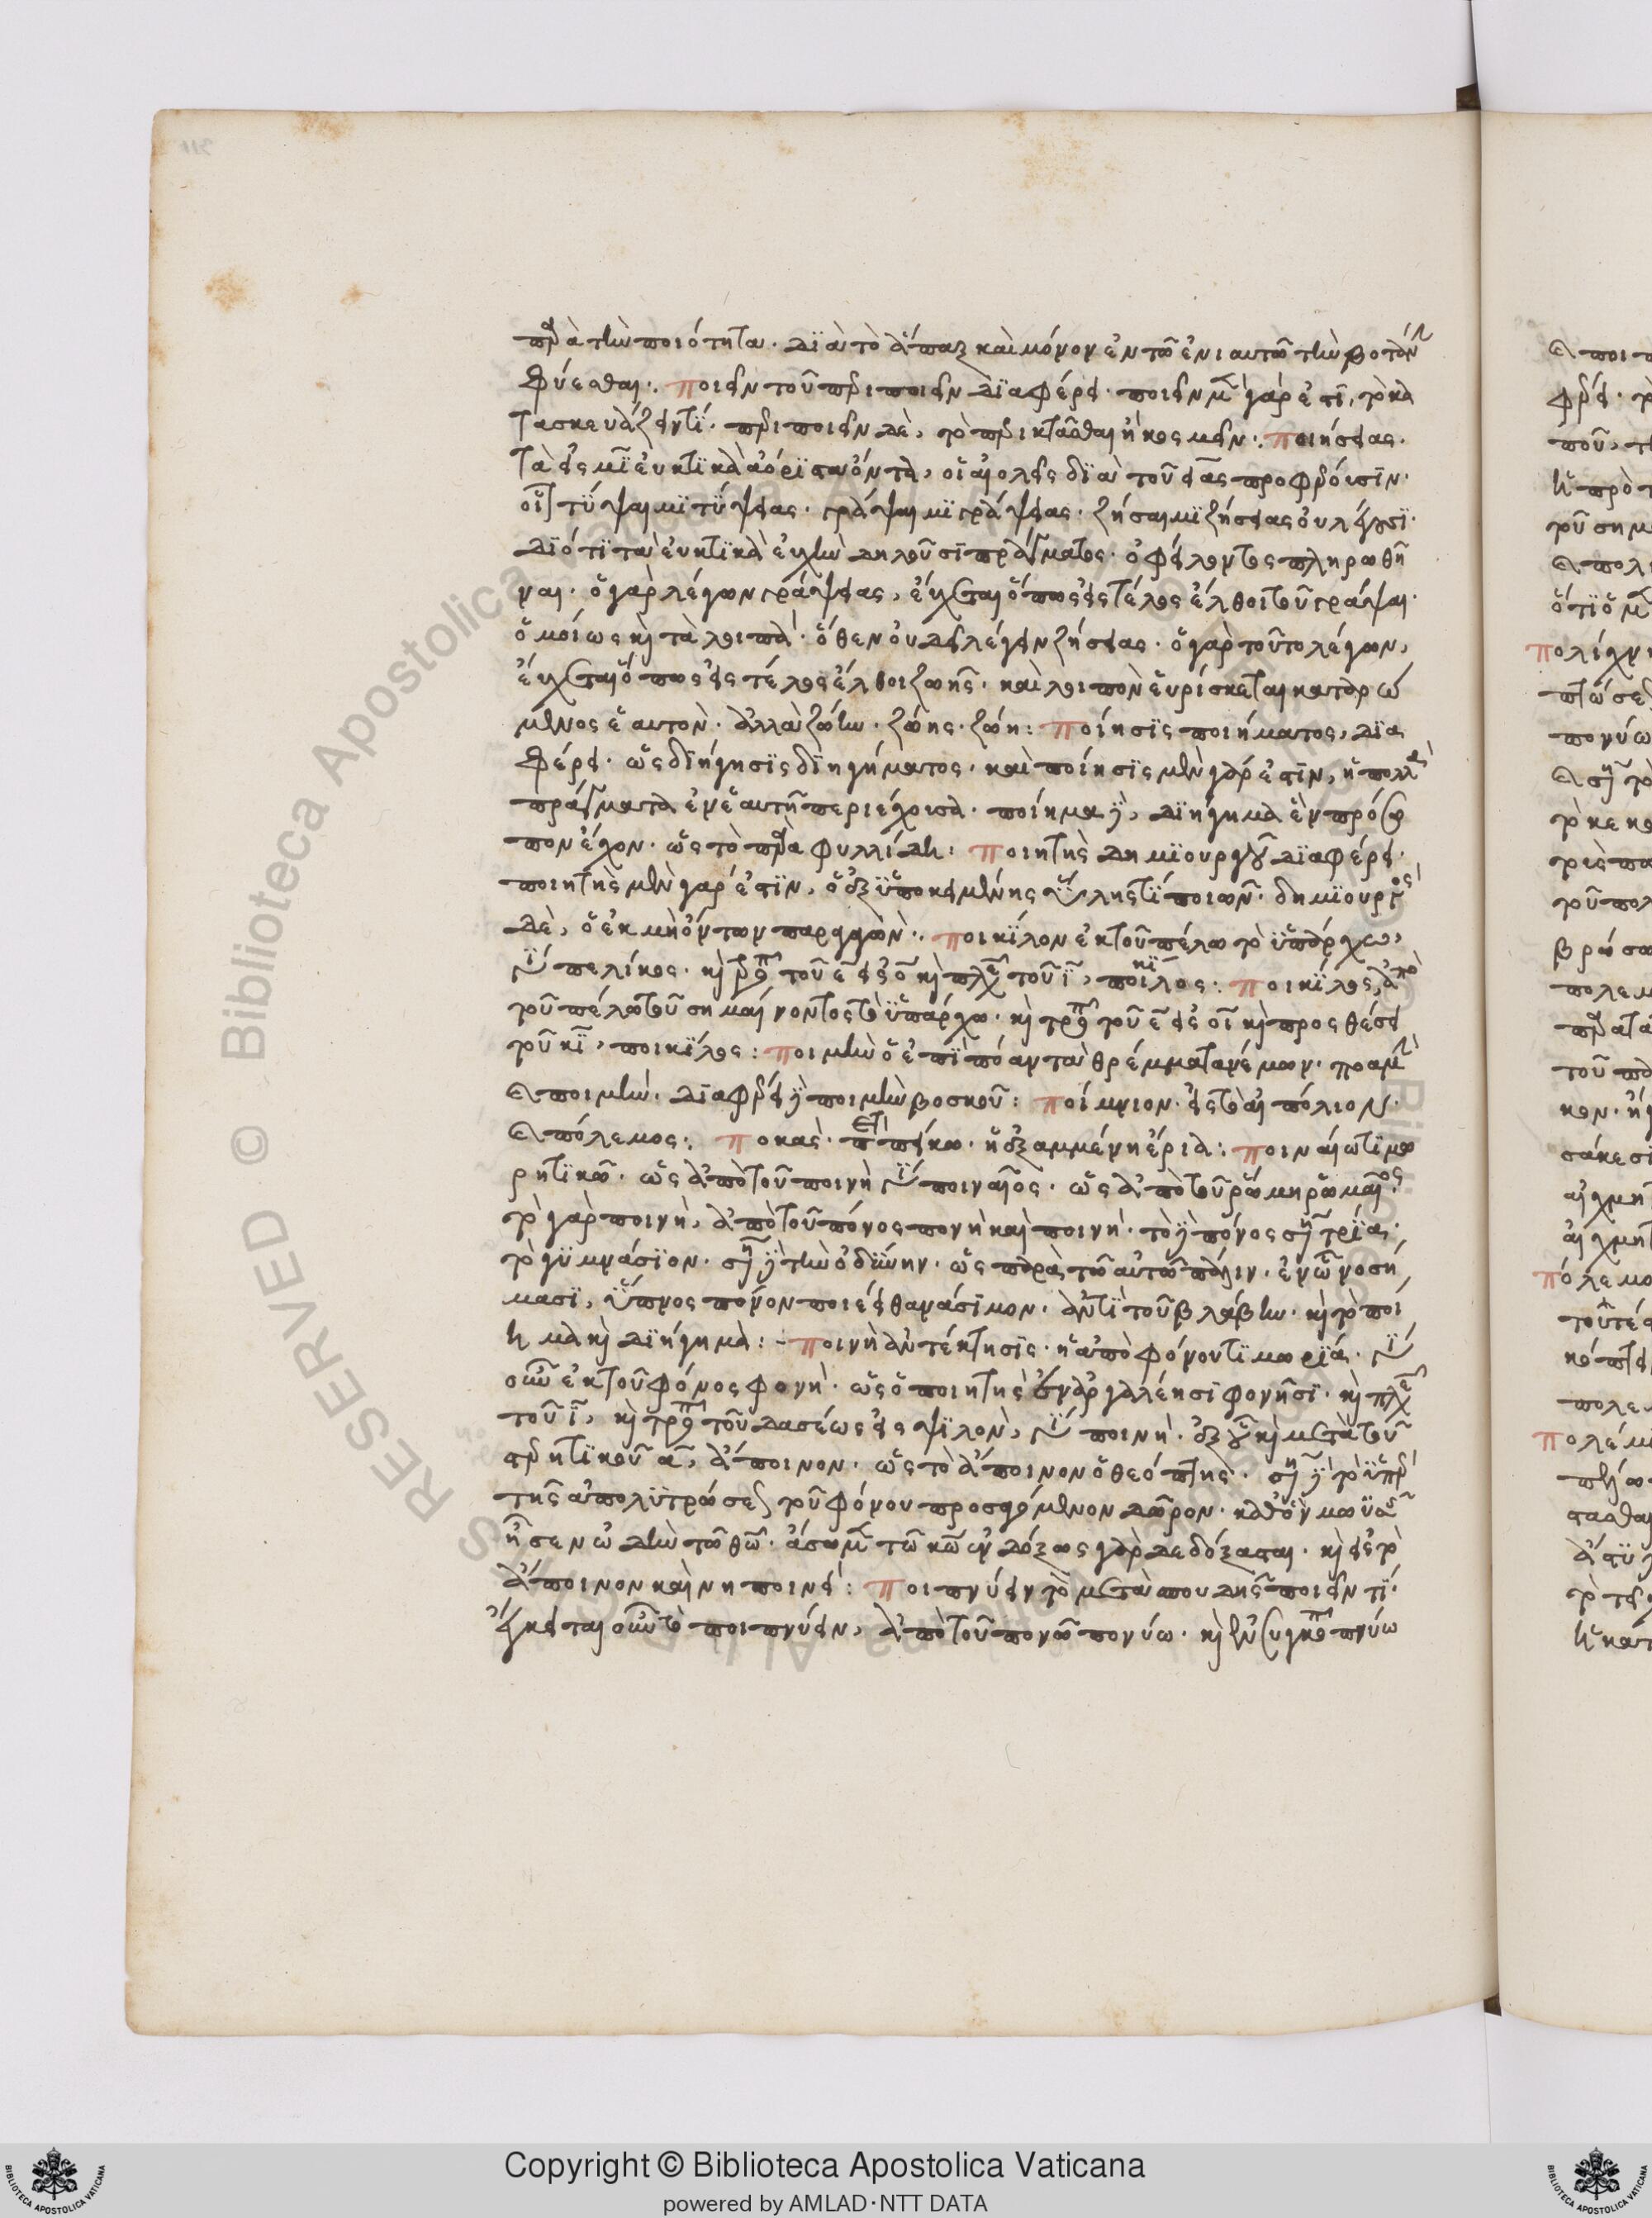 παρὰ τὴν ποιότητα. διὰ τὸ ἅπαξ καὶ μόνον ἐν τῶ ἐνιαυτῶ τὴν βοτάνην
φύεσθαι: ποιεῖν τοῦ περιποιεῖν διαφέρει. ποιεῖν μὲν γάρ ἐστι, τὸ κα
τασκευάζειν τί. περιποιεῖν δὲ, τὸ περικτᾶσθαι ἢ κοσμεῖν: ποιήσειας.
τὰ εἰς μι εὐκτικὰ ἀόριστα ὄντα, οἱ αἰολεῖς διὰ τοῦ ειας προφέρουσιν.
οἷον τύψαιμι τύψειας. γράψαιμι γράψειας. ζήσαιμι ζήσειας οὐ λέγουσι.
διότι τὰ εὐκτικὰ εὐχὴν δηλοῦσι πράγματος. ὀφείλοντος πληρωθῆ
ναι. ὁ γὰρ λέγων γράψειας, εὔχεται ὅπως εἰς τέλος ἔλθοι τοῦ γράψαι.
ὁμοίως καὶ τὰ λοιπά. ὅθεν οὐ δεῖ λέγειν ζήσειας. ὁ γὰρ τοῦτο λέγων,
εὔχεται ὅπως εἰς τέλος ἔλθοι ζωῆς. καὶ λοιπὸν εὑρίσκεται καταρώ
μενος ἑαυτὸν. ἀλλὰ ζώην. ζώης. ζώη: ποίησις ποιήματος, δια
φέρει. ὡς διήγησις διηγήματος. καὶ ποίησις μὲν γάρ ἐστιν, ἡ πολλὰ
πράγματα ἐν ἑαυτῆ περιέχουσα. ποίημα δὲ, διήγημα ἓν πρόσω
πον ἔχον. ὡς τὸ παρὰ φυλλίδη: ποιητὴς δημιουργοῦ διαφέρει.
ποιητὴς μὲν γάρ ἐστιν, ὁ ἐξ ὑποκειμένης ὕλης τί ποιῶν. δημιουργὸς
δὲ, ὁ ἐκ μὴ ὄντων παραγαγὼν: ποικίλον ἐκ τοῦ πέλω τὸ ὑπάρχω,
πελίκος. καὶ τροπῆ τοῦ ε εἰς ο καὶ πλεονασμῶ τοῦ ι, ποικίλος: ποικίλος, ἀπὸ
τοῦ πέλω τοῦ σημαίνοντος τὸ ὑπάρχω. καὶ τροπῆ τοῦ ε εἰς οι καὶ προσθέσει
τοῦ κι, ποικίλος: ποιμὴν ὁ ἐπὶ πόαν τὰ θρέμματα νέμων.
ποιμήν. διαφέρει δὲ ποιμὴν βοσκοῦ: ποίμνιον. εἰς τὸ αἰπόλιον.
πόλεμος: ποκάς. πείκω. ἡ ἐξαμμένη ἔρια: ποιναίω τιμω
ρητικῶ. ὡς ἀπὸ τοῦ ποινὴ ποιναῖος. ὡς ἀπὸ τοῦ ῥώμη ῥωμαῖος.
τὸ γὰρ ποινὴ, ἀπὸ τοῦ πόνος πονὴ καὶ ποινή. τὸ δὲ πόνος σημαίνει τρία.
τὸ γυμνάσιον. σημαίνει δὲ τὴν ὀδύνην. ὡς παρὰ τῶ αὐτῶ πάλιν. ἐν ὧ νοσή
μασι, ὕπνος πόνον ποιέει θανάσιμον. ἀντὶ τοῦ βλάβην. καὶ τὸ ποί
ημα καὶ διήγημα: ποινὴ ἀντέκτησις. ἡ ἀπὸ φόνου τιμωρία.
οὖν ἐκ τοῦ φόνος φονὴ. ὡς ὁ ποιητὴς ἐν ἀργαλέησι φονῆσι. καὶ πλεονασμῶ
τοῦ ι, καὶ τροπῆ τοῦ δασέως εἰς ψιλὸν, ποινή. ἐξ οὗ καὶ μετὰ τοῦ
στερητικοῦ α, ἄποινον. ὡς τὸ ἄποινον ὁ θεόπτης. σημαίνει δὲ τὸ ὑπὲρ
τῆς ἀπολυτρώσεως τοῦ φόνου προσαγόμενον δῶρον. καθ' ὃν μωϋσῆς
ἦσεν ὠδὴν τῶ θεῶ. ἄσωμεν τῶ κυρίω ἐνδόξως γὰρ δεδόξασται. καὶ εἰς τὸ
ἄποινον καὶ νηποινεί: ποιπνύειν τὸ μετὰ σπουδῆς ποιεῖν τί.
ἔγκειται οὖν τὸ ποιπνύειν, ἀπὸ τοῦ πονῶ πονύω. καὶ ἐν συγκοπῆ πνύω